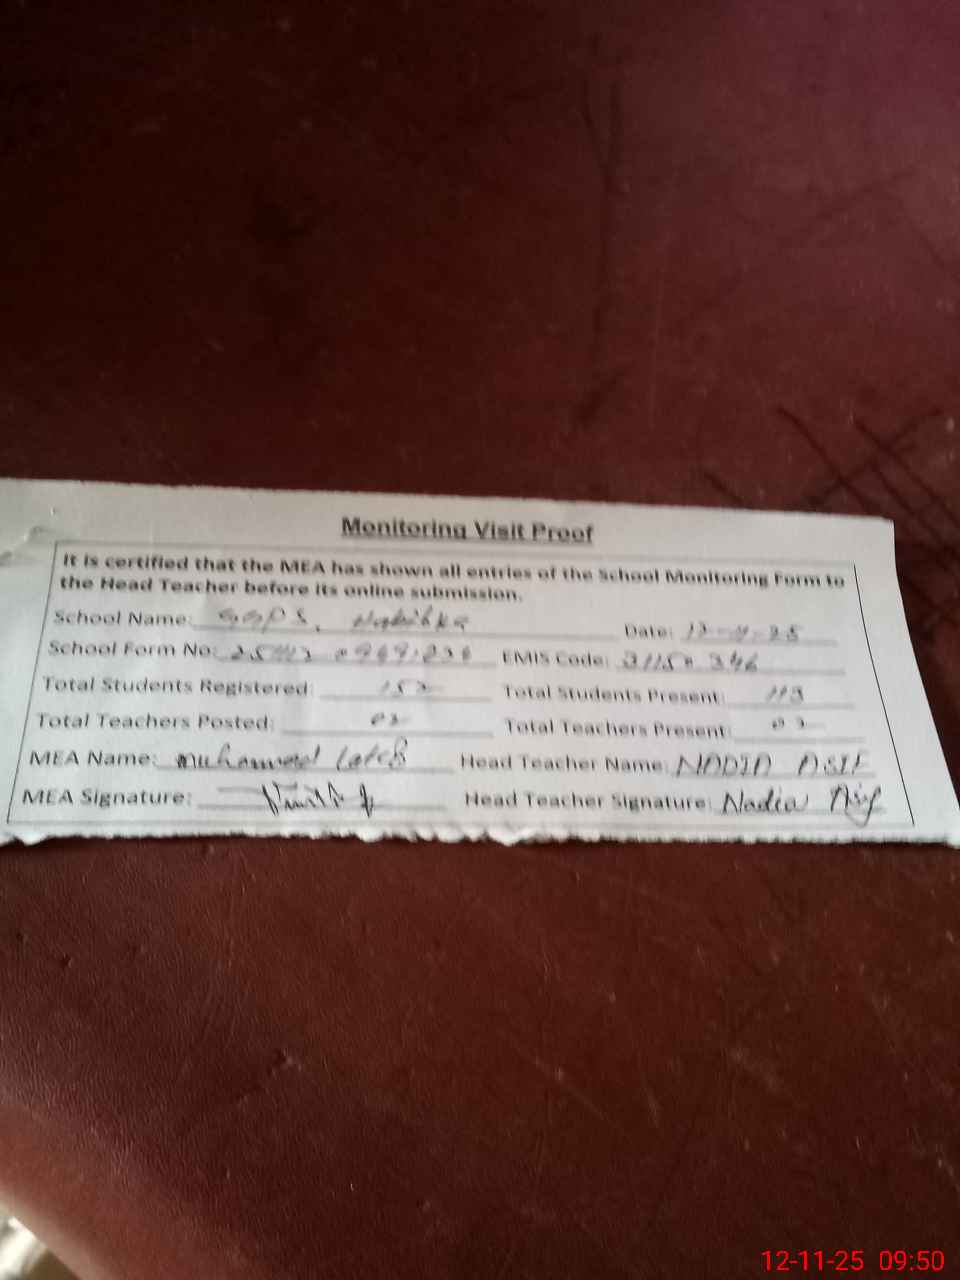 Monitoring Visit Proof
It is certified that the MEA has shown all entries of the School Monitoring Form to
the Head Teacher before its online submission.
School Name: Date:
School Form No: EMIS Code:
Total Students Registered: 152 Total Students Present: 113
Total Teachers Posted: 03 Total Teachers Present: 03
MEA Name: muhammad Head Teacher Name: NADIA ASIF
MEA Signature: Head Teacher Signature: Nadia Asif
12-11-25 09:50